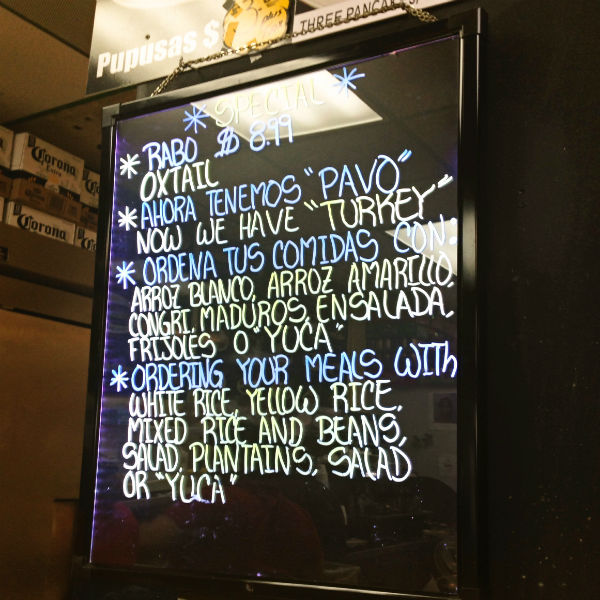 Pupusas $
THREE PANCAKES
* SPECIAL *
* RABO $ 8.99
OXTAIL
* AHORA TENEMOS "PAVO"
NOW WE HAVE "TURKEY"
* ORDENA TUS COMIDAS CON:
ARROZ BLANCO, ARROZ AMARILLO,
CONGRI, MADUROS, ENSALADA,
FRISOLES O "YUCA"
* ORDERING YOUR MEALS WITH
WHITE RICE, YELLOW RICE.
MIXED RICE AND BEANS,
SALAD, PLANTAINS, SALAD
OR "YUCA"
Corona
Extra
Corona